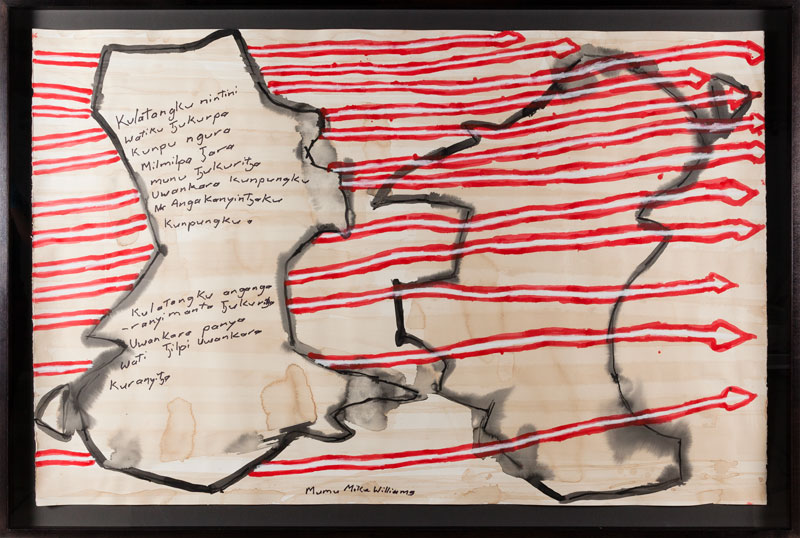 Kulatangku nintini
watiku Tjukurpa
Kunpu ngura
Milmilpa Tjara
munu Tjukuritja
Uwankara Kunpungku
Angakanyintjaku
Kunpungku.
Kulatangku anganga
-ranyi manta Tjukuritja
Uwankara panya
wati Tjilpi Uwankara
Kuranyitja
Mumu Mike Williams